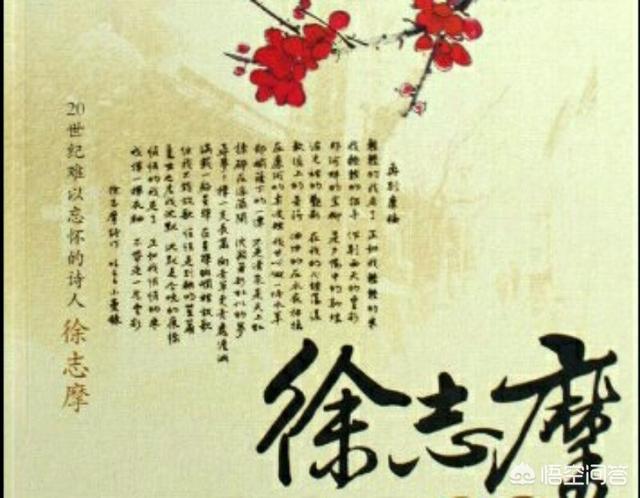 再别康桥
轻轻的我走了 正如我轻轻的来
我轻轻的招手 作别西天的云彩
那河畔的金柳 是夕阳中的新娘
波光里的艳影 在我的心头荡漾
软泥上的青荇 油油的在水底招摇
在康河的柔波里 我甘心做一条水草
那榆荫下的一潭 不是清泉是天上虹
揉碎在浮藻间 沉淀着彩虹似的梦
寻梦 撑一支长篙 向青草更青处漫溯
满载一船星辉 在星辉斑斓里放歌
但我不能放歌 悄悄是别离的笙箫
夏虫也为我沉默 沉默是今晚的康桥
悄悄的我走了 正如我悄悄的来
我挥一挥衣袖 不带走一片云彩
徐志摩诗作 小曼录
20世纪难以忘怀的诗人 徐志摩
徐志摩
悟空问答